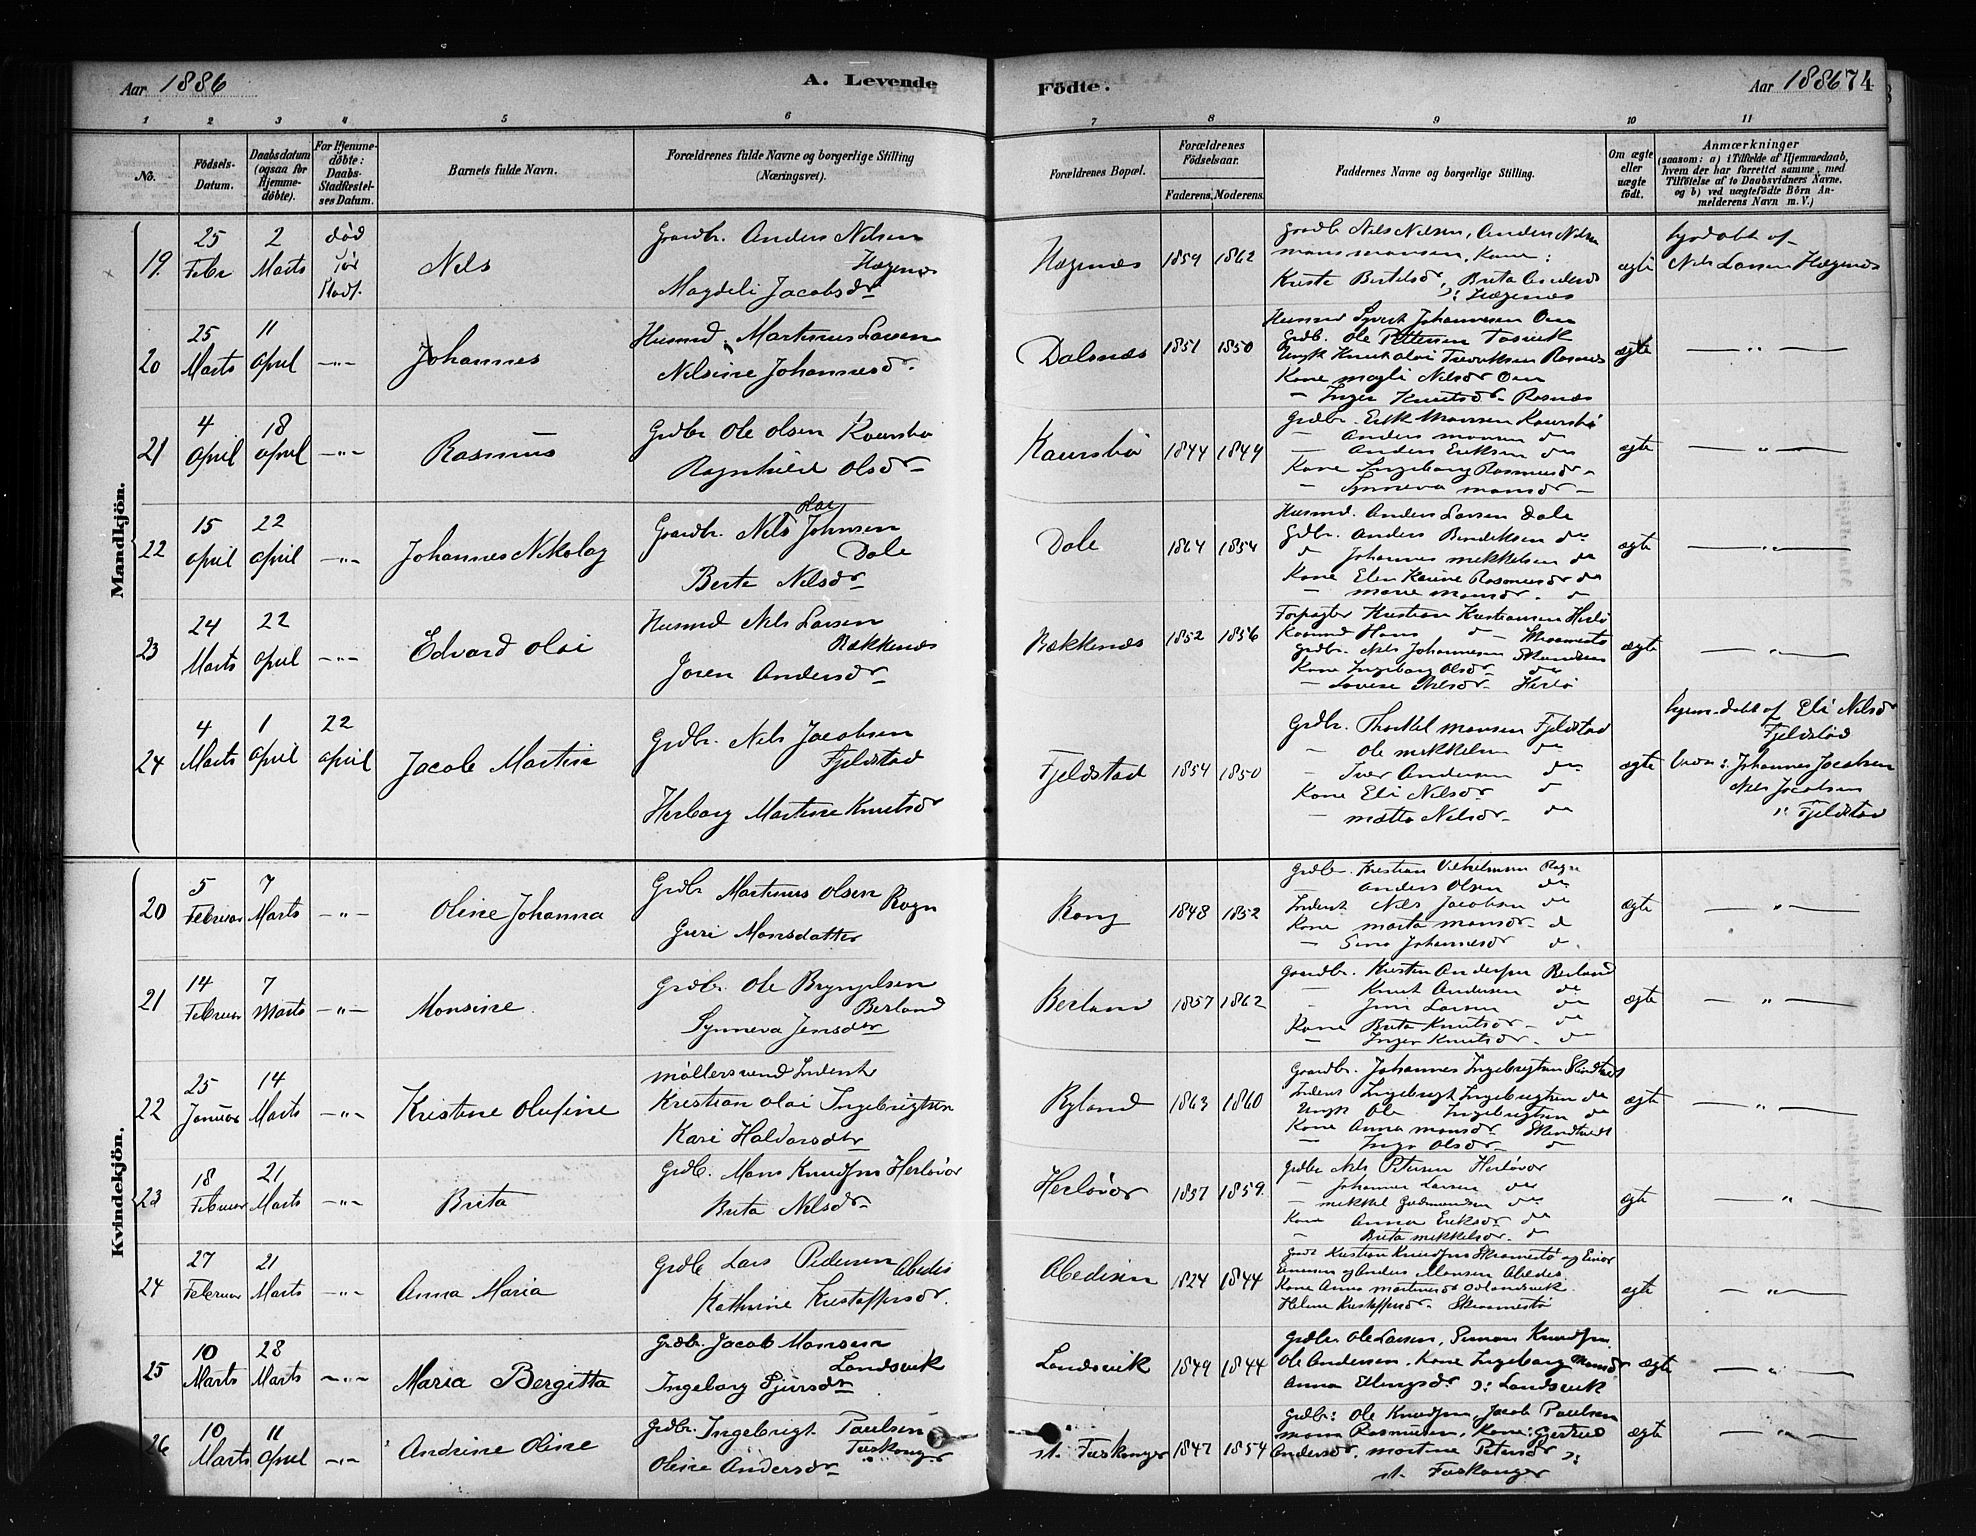 Aar 1886
A. Levende
Födte.
Aar 1886 74
1 2 3 4 5 6 7 8 9 10 11
No.
Födsels-Datum.
Daabsdatum (ogsaa for Hjemme-döbte).
For Hjemme-döbte: Daabs-Stadfæstel-ses Datum.
Barnets fulde Navn.
Forældrenes fulde Navne og borgerlige Stilling (Næringsvei).
Forældrenes Bopæl.
Forældrenes Födselsaar.
Faderens. Moderens.
Faddernes Navne og borgerlige Stilling.
Om ægte eller uægte födt.
Anmærkninger
(saasom: a) i Tilfælde af Hjemmedaab, hvem der har forrettet samme, med Tilföielse af to Daabsvidners Navne, og b) ved uægtefödte Börn Anmelderens Navn m. V.)
Mandkjön.
19. 25 Febr 2 Marts død før Stadf.
Nels
Gaardbr. Anders Nilsen Hægenæs
Magdeli Jacobsdr
Hægenæs 1859 1862
Gaardb Nils Nilsen, Anders Nilsen
Mons Monsen, Kone:
Kriste Bertelsdr, Brita Andersd
ɔ: Hægenæs
ægte
Nils Larsen Hægenæs
20 25 Marts 11 April —"—
Johannes
Husmd. Martinus Larsen
Nilsine Johannesdr.
Dalsnæs 1851 1850
Husmd Johannesen Oen
Grdb. Ole Pettersen
Ungk Knut Olai Rosnes
Kone Magli Nilsdr Oen
— Inger Knutsdr. Rosnæs
ægte —"—
21 4 April 18 April —"—
Rasmus
Grdbr Ole Olsen Kaursbø
Ragnhild Olsdr
Kaursbø 1844 1849
Grdbr. Erik Monsen Kaursbø
— Anders Monsen do
— Anders Eriksen do
Kone Ingeborg Rasmusdr —
— Synneva Monsdr —
ægte —"—
22 15 April 22 April —"—
Johannes Nikolay
Gaardbr. Nils Johnsen Dale
Berte Nilsdr
Dale 1864 1854
Husmd. Anders Larsen Dale
Gdbr. Anders Bendiksen do
d Johannes Mikkelsen do
Kone Elen Karine Rasmusdr do
— Marie Monsdr. d
ægte —"—
23 24 Marts 22 April —"—
Edvard Olai
Husmd Nils Larsen Bækkenæs
Joren Andersdr
Bækkenæs 1852 1856
Forpagter Kristian Kristiansen Herlø
Hans d
Grdbr. Nils Johannesen
Kone Ingeborg Olsdr. do
— Lovise Nilsdr. Herlø
ægte —"—
24 4 Marts 1 April 22 April
Jacob Martin
Grdbr. Nils Jacobsen Fjeldstad
Herborg Martine Knutsdr
Fjeldstad 1854 1850
Grdbr. Thorkel Monsen Fjeldstad
— Ole Mikkelsen do
— Iver Andersen do
Kone Eli Nilsdr d
— Mætta Nilsdr. do
ægte
hjem. døbt af Eli Nilsdr Fjeldstad
Johannes Jacobsen
Nils Jacobsen
ɔ: Fjeldstad
Kvindekjön.
20 5 Februar 7 Marts —"—
Oline Johanna
Grdbr Martinus Olsen Rogn
Guri Monsdatter
Rong 1848 1852
Grdbr. Kristian Vilhelmsen Rogn
— Anders Olsen do
Inderst Nils Jacobsen do
Kone Marta Monsdr. d
— Sina Johannesdr d.
ægte —"—
21 14 Februar 7 Marts —"—
Monsine.
Grdbr. Ole Brynjelsen Berland
Synneva Jensdtr
Berland 1857 1862
Gaardbr. Kristen Andersen Berland
— Knut Andersen do
— Jens Larsen do
Kone Brita Knutsdr — do
— Inger Knutsdr. do
ægte —"—
22 25 Januar 14 Marts —"—
Kristine Olufine
Møllersvend Inderst
Kristian Olai Ingebrigtsen
Kari Haldorsdtr
Ryland 1863 1860
Gaardbr. Johannes Ingebrigtsen
Inderst Ingebrigt Ingebrigtsen do
Ungk Ole Ingebrigtsen do
Kone Anna Monsdr
— Inga Olsdr d
ægte —"—
23 18 Februar 21 Marts —"—
Brita
Grdb. Mons Knudsen Herløvær
Brita Nilsdr
Herløvær 1857 1859.
Grdbr Nils Petersen Herløvær
— Johannes Larsen do
— Mikkel Gudmundsen do
Kone Anna Eriksdr do
— Brita Mikkelsdr. d
ægte —"—
24 27 Februar 21 Marts —"—
Anna Maria
Grdb Lars Pedersen Abedis
Kathrine Kristoffersdr.
Abedisen 1824 1844
Grdb Kristian Knudsen Skrammestø og Einar
Einersen og Anders Monsen Abedis.
Kone Anna Martinusdr
Helene Kristoffersdr. Skrammestø
ægte —"—
25 10 Marts 28 Marts —"—
Maria Bergitta
Grdbr. Jacob Monsen Landsvik
Ingeborg Sjursdr
Landsvik 1849 1844
Grdbr Ole Larsen, Simon Knudsen
Ole Andersen. Kone Ingeborg Monsdr
Anna Ellingsdr ɔ: Landsvik
ægte —"—
26 10 Marts 11 April —"—
Andrine Oline
Grdbr. Ingebrigt Paulsen Fuskanger
Oline Andersdr
st. Fuskanger 1847 1854
Grdbr: Ole Knudsen, Jacob Paulsen
Mons Rasmusen, Kone: Gjertrud
Andersdr. Martine Petersdr ɔ:
st. Fuskanger
ægte —"—